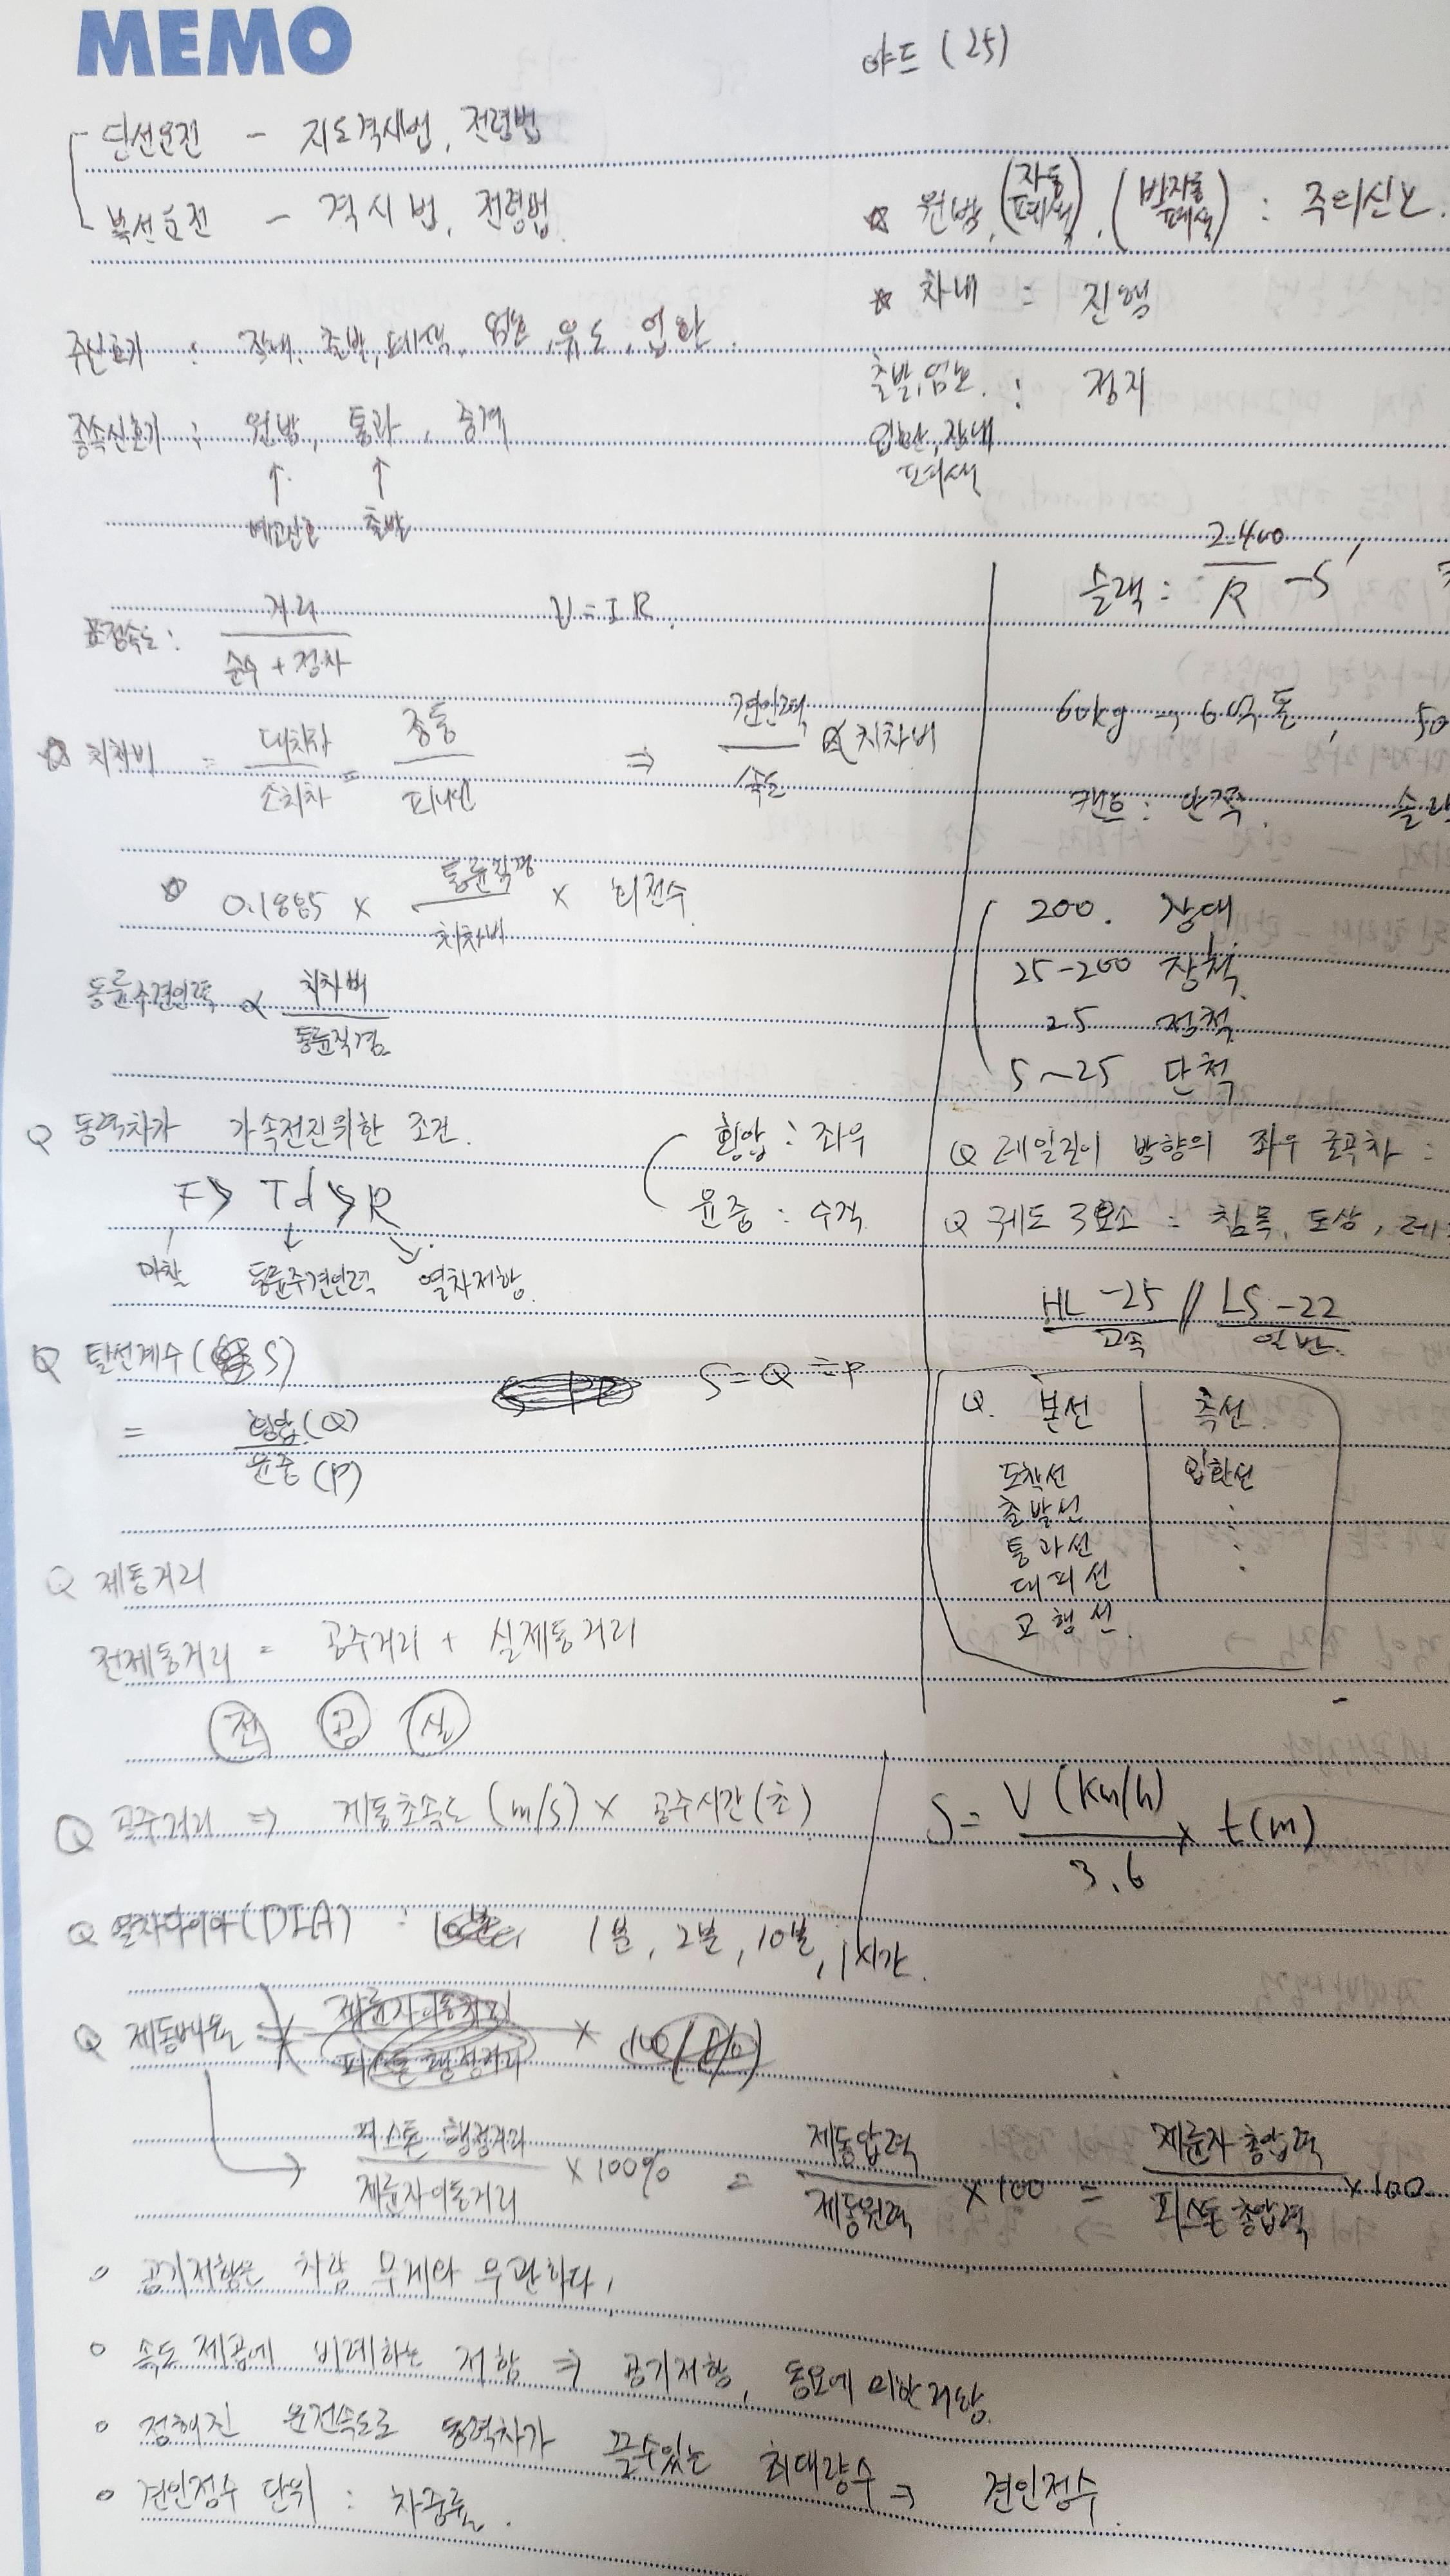 MEMO
야드 (25)
단선운전 - 지도격시법, 전령법
복선운전 - 격시법, 전령법
☆ 원방, (자동폐색), (반자동폐색) : 주의신호.
☆ 차내 : 진행
주신호기 : 장내, 출발, 폐색, 엄호, 유도, 입환
출발, 엄호. : 정지
입환, 장내
폐색
종속신호기 : 원방, 통과, 중계
↑ ↑
예고신호 출발
슬랙 : 2400/R - S'
표정속도 : 거리/순수 + 정차
V = IR.
60kg → 6억톤, 50
☆ 치차비 = 대치차/소치차 = 종동/피니언 ⇒ 견인력/속도 ∝ 치차비
캔트 : 안쪽.
☆ 0.1885 × 동륜직경/치차비 × 회전수
200. 장대
25-200 장척
25 정척
5~25 단척
동륜주견인력 ∝ 치차비/동륜직경
Q 동력차가 가속전진위한 조건.
F > Td > R
마찰 동륜주견인력 열차저항.
횡압 : 좌우
윤중 : 수직
Q 레일길이 방향의 좌우 굴곡차 :
Q 궤도 3요소 : 침목, 도상, 레
HL-25 // LS-22
고속 일반.
Q 탈선계수 (S)
= 횡압(Q)/윤중(P)
S = Q ÷ P
Q. 본선 측선
도착선 입환선
출발선 :
통과선 :
대피선
교행선.
Q 제동거리
전제동거리 = 공주거리 + 실제동거리
전 공 실
Q 공주거리 ⇒ 제동초속도 (m/s) × 공주시간(초)
S = V (Km/h)/3.6 × t(m)
Q 열차다이아(DIA) : 1분, 2분, 10분, 1시간.
Q 제동배율 =
→ 피스톤 행정거리/제륜자이동거리 × 100% = 제동압력/제동원력 × 100 = 제륜자 총압력/피스톤 총압력 × 100.
○ 공기저항은 차량 무게와 무관하다,
○ 속도 제곱에 비례하는 저항 ⇒ 공기저항, 동요에 의한 저항.
○ 정해진 운전속도로 동력차가 끌수있는 최대량수 → 견인정수
○ 견인정수 단위 : 차중률.